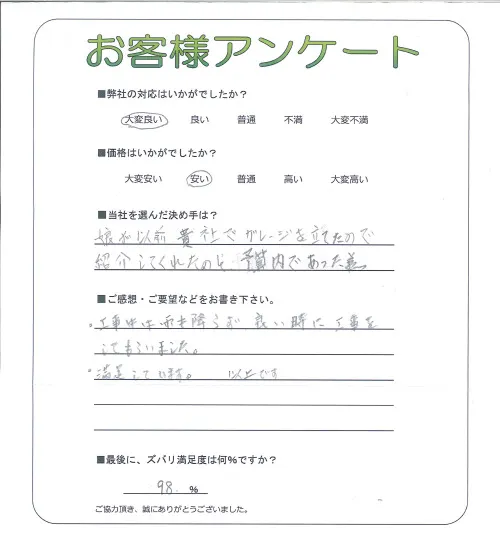 お客様アンケート
■弊社の対応はいかがでしたか？
大変良い 良い 普通 不満 大変不満
■価格はいかがでしたか？
大変安い 安い 普通 高い 大変高い
■当社を選んだ決め手は？
娘が以前貴社でガレージを立てたので
紹介してくれたのと、予算内であった為。
■ご感想・ご要望などをお書き下さい。
。工事中は雨も降らず、良い時に工事を
してもらいました。
。満足しています。 以上です
■最後に、ズバリ満足度は何%ですか？
98. %
ご協力頂き、誠にありがとうございました。